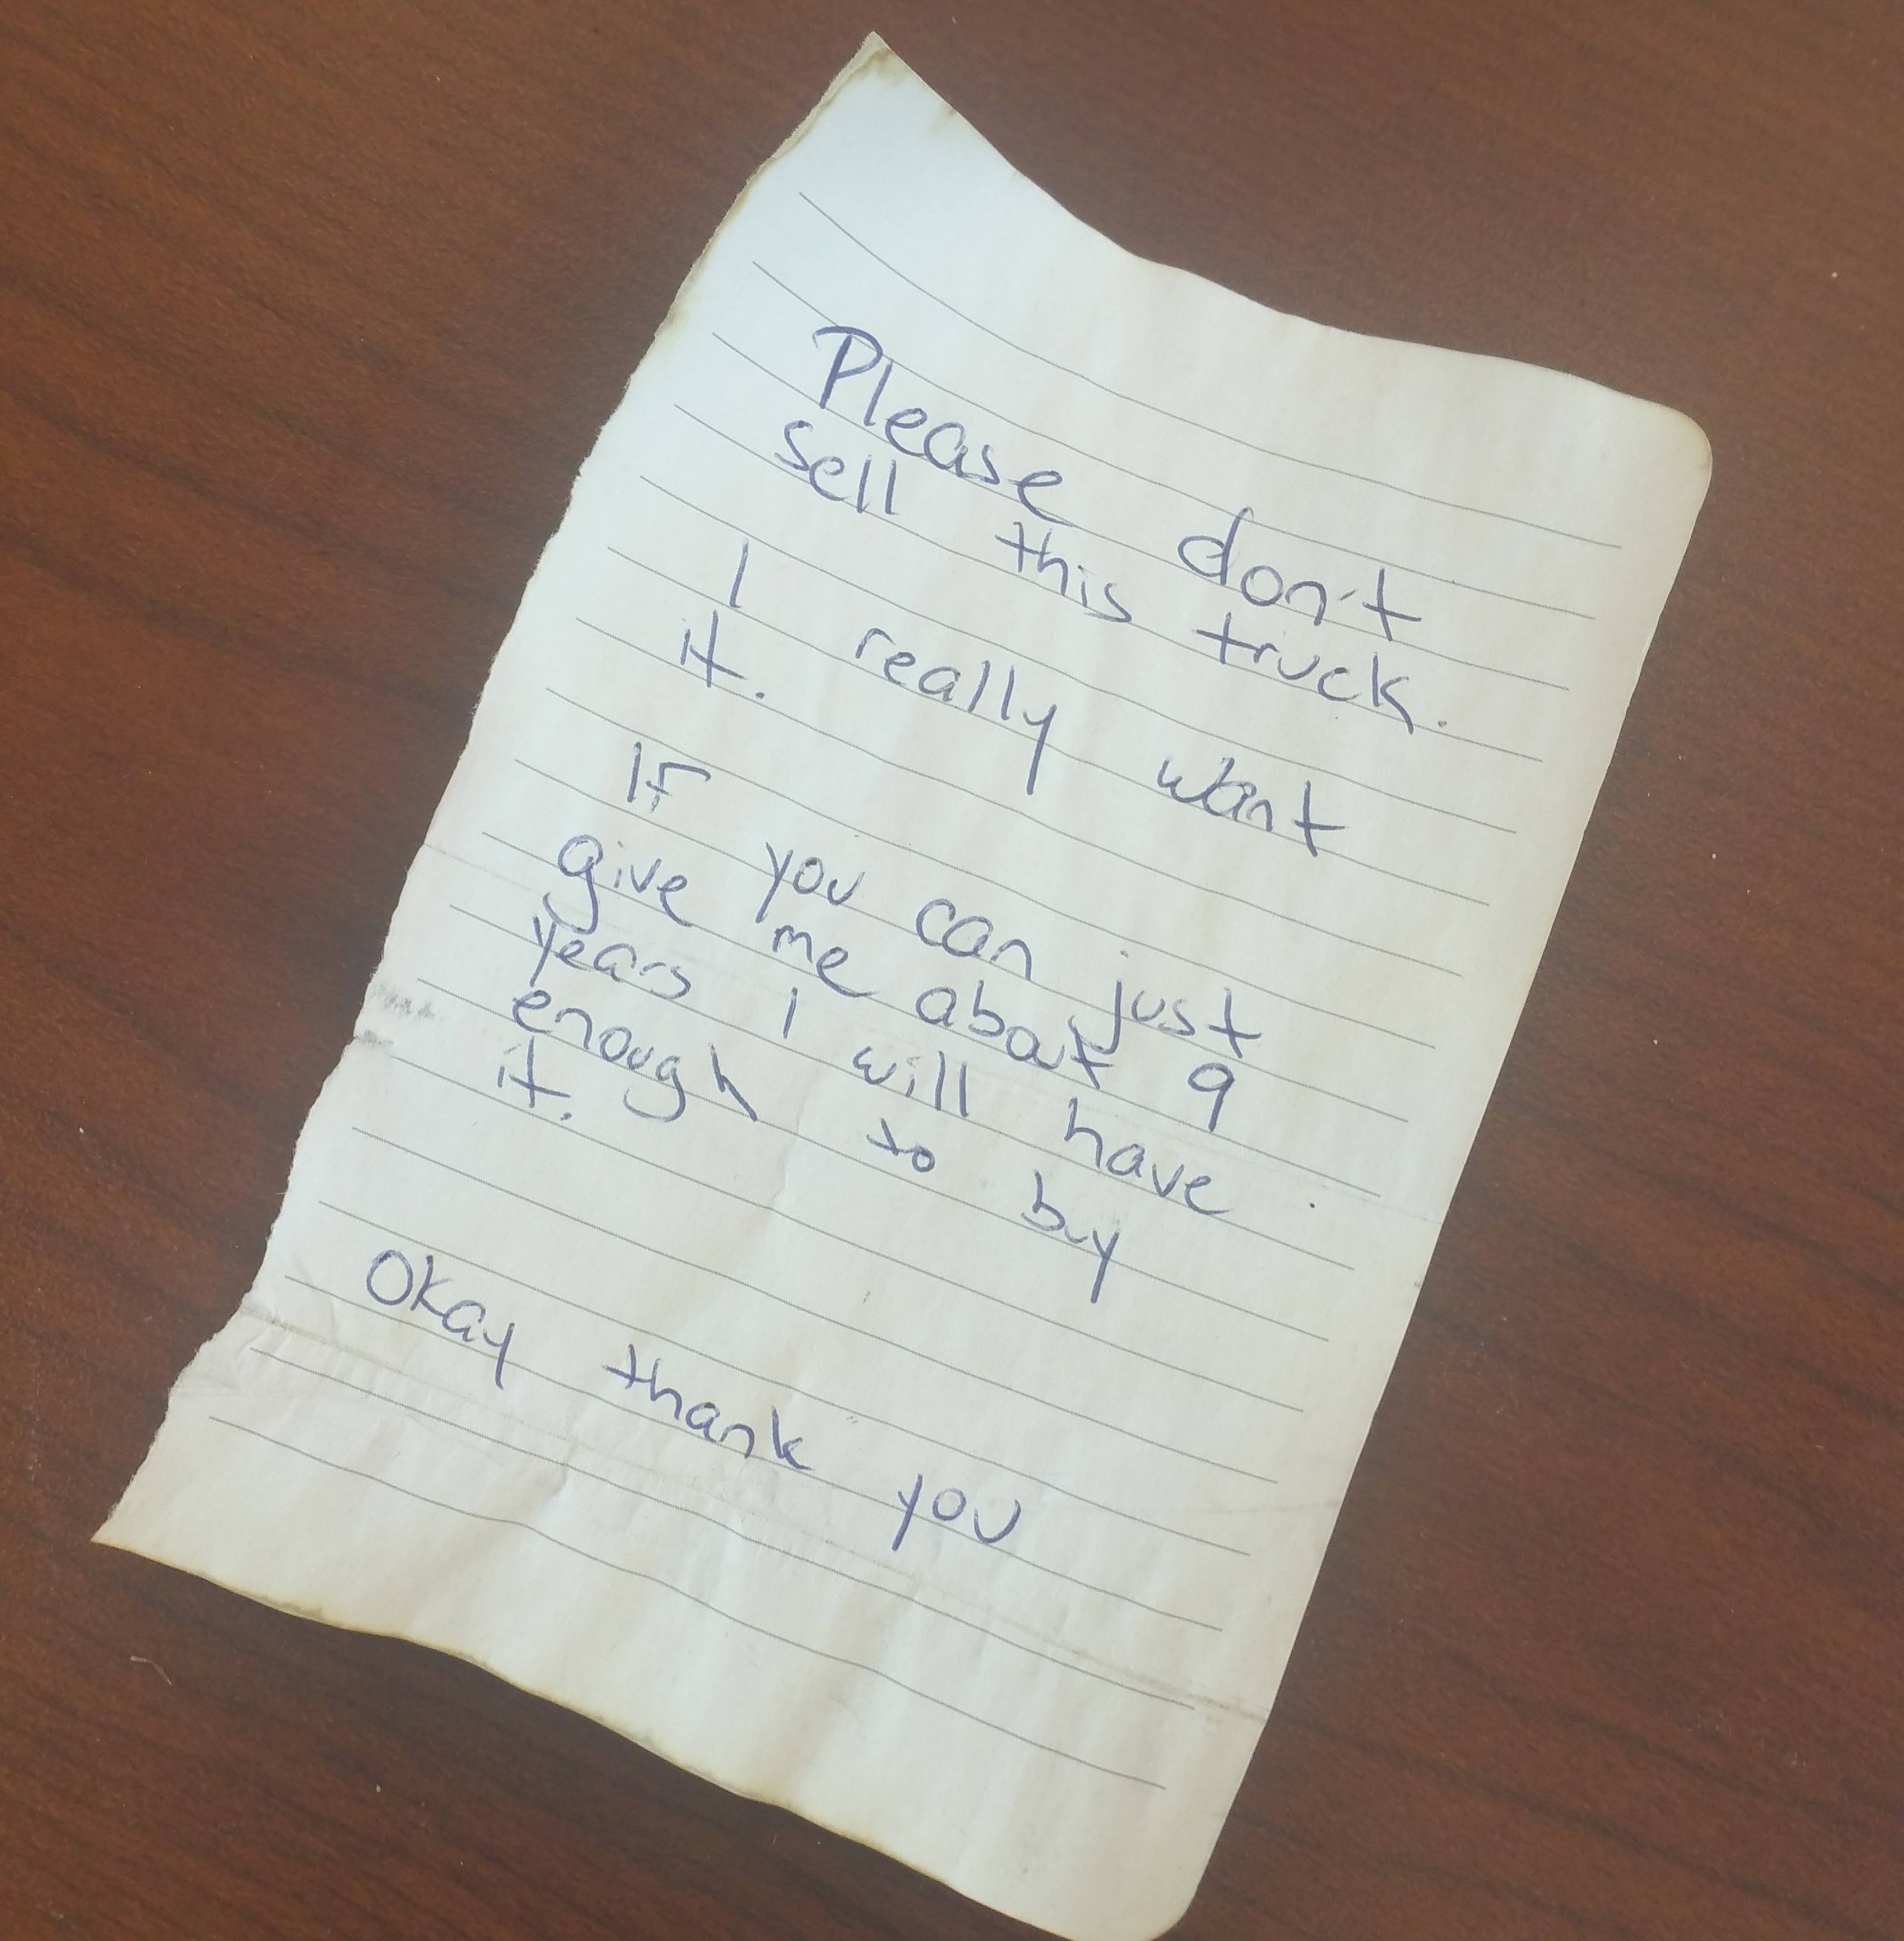 Please don't
sell this truck.
I really want
it.
If you can just
give me about 9
years I will have
enough to buy
it.
Okay thank you